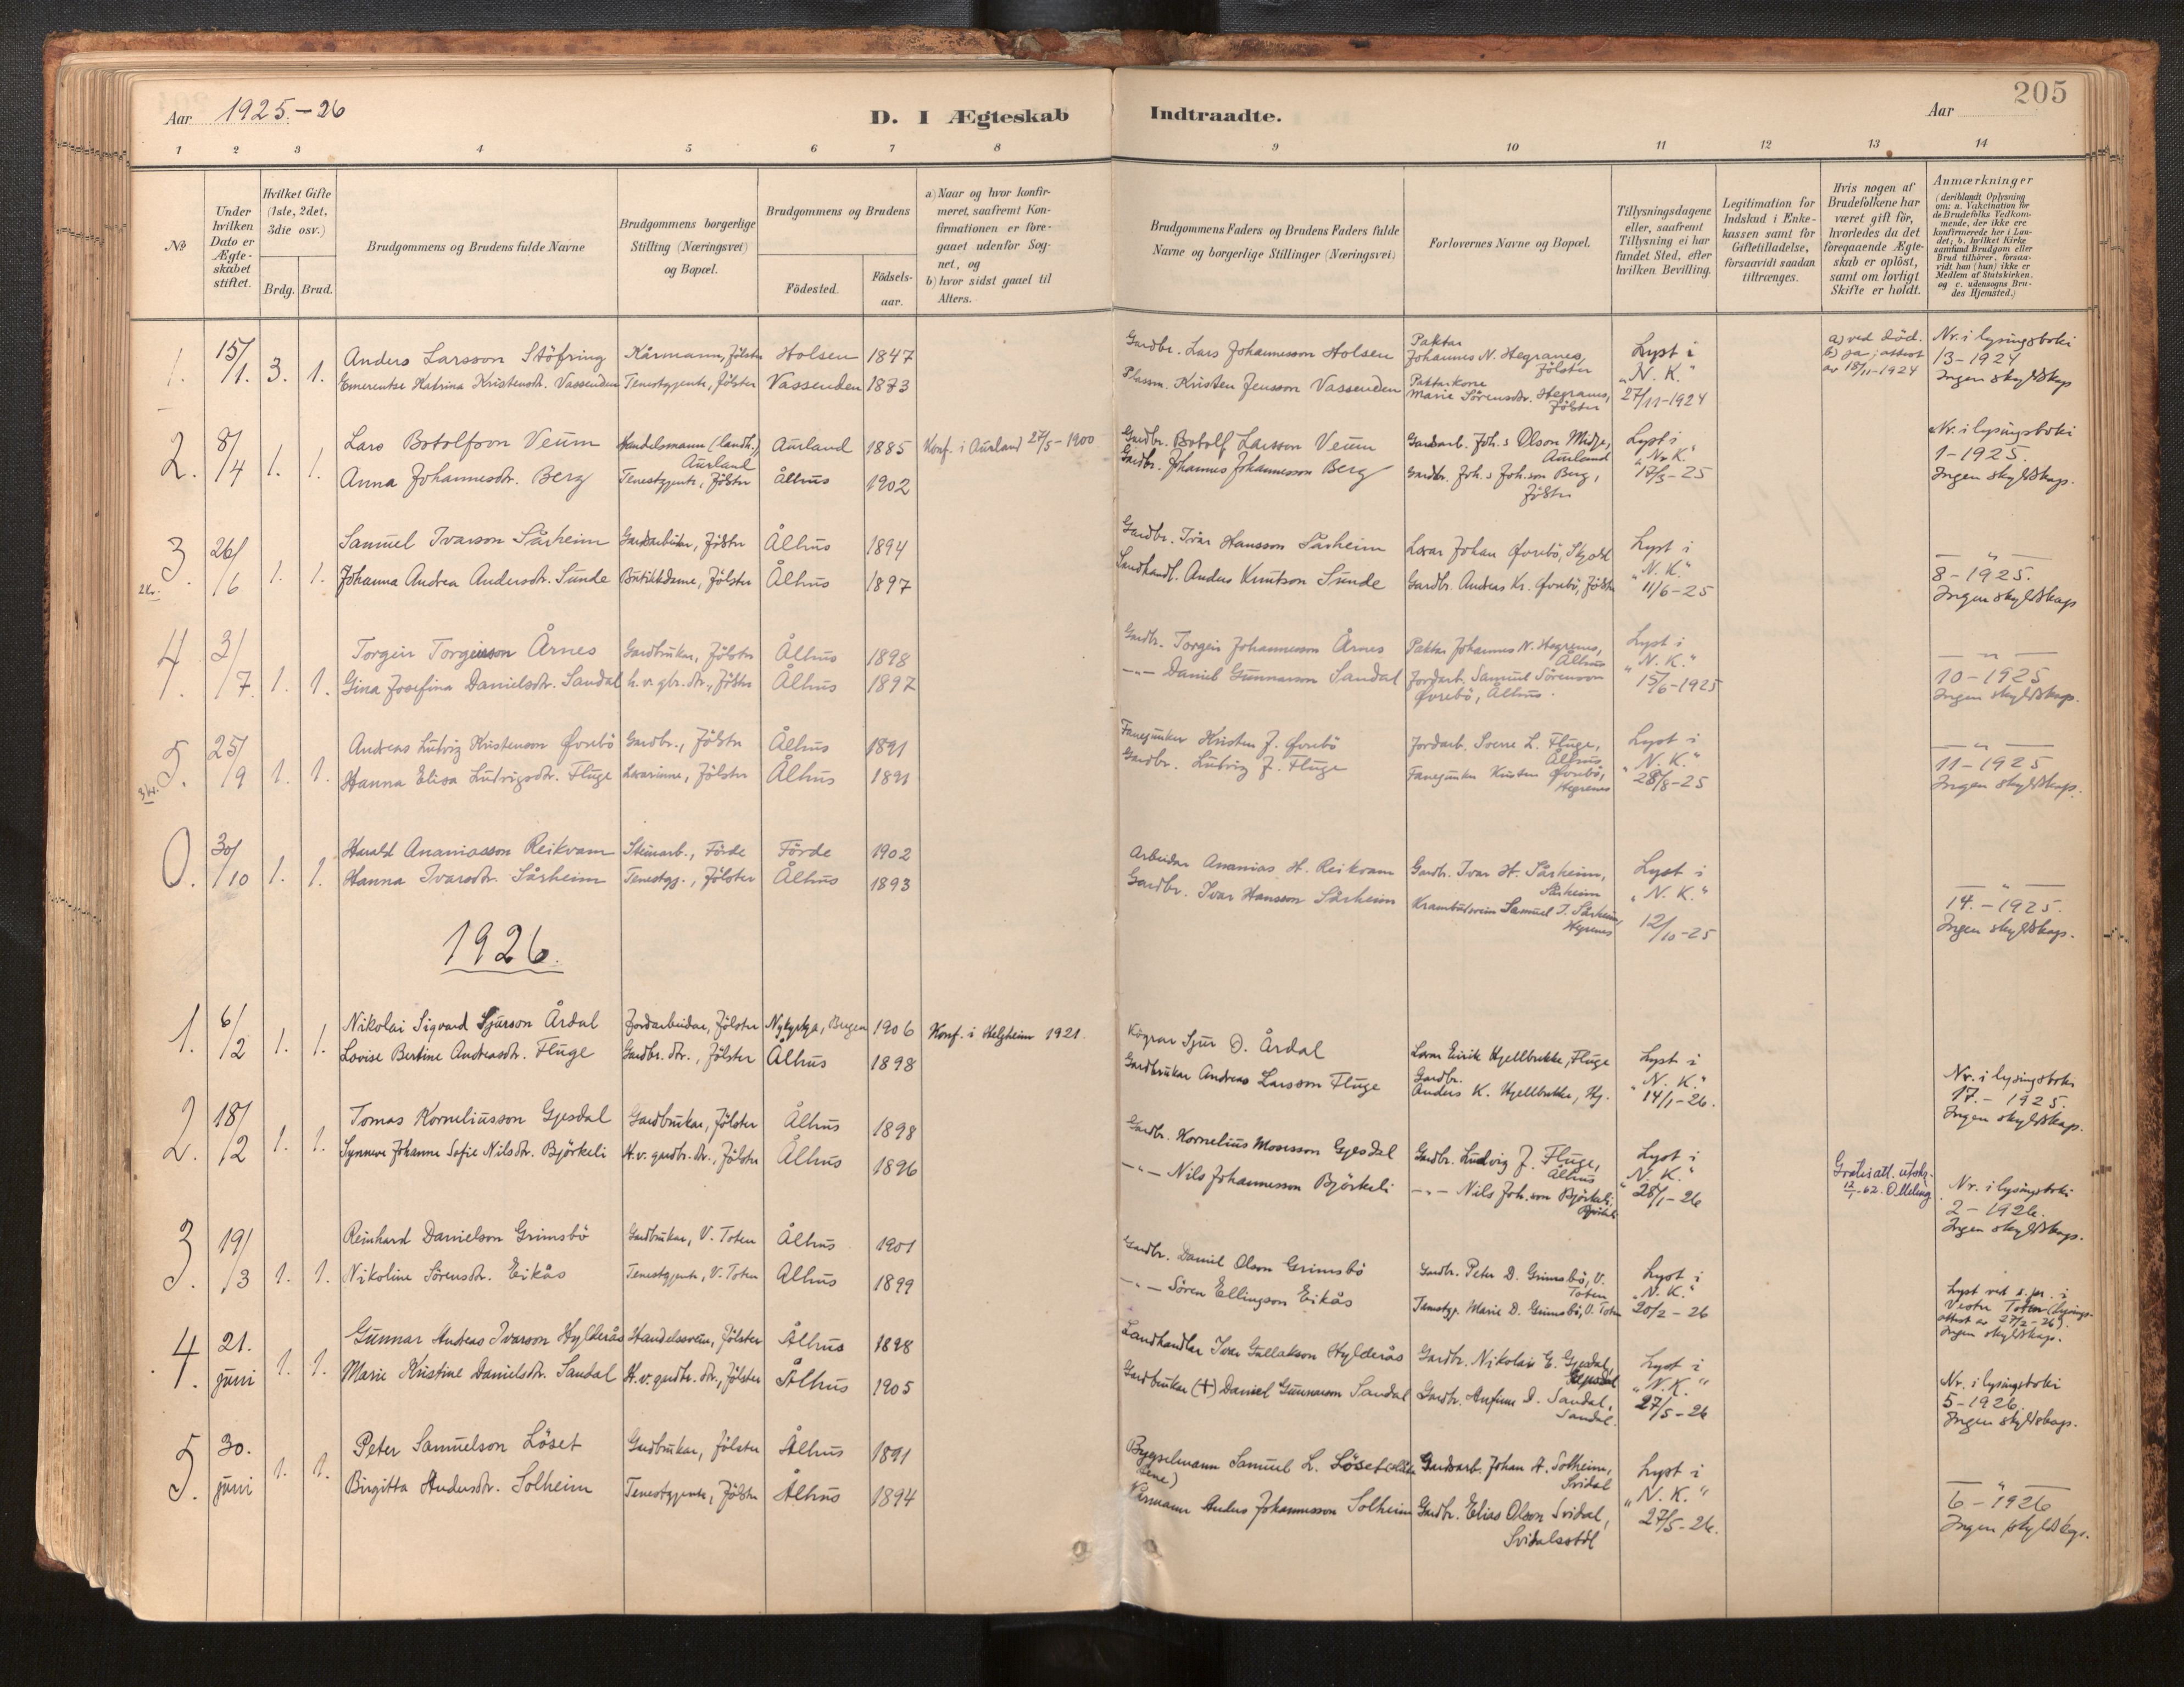 205
Aar 1925-26
D. I Ægteskab Indtraadte.
Aar
1 2 3 4 5 6 7 8 9 10 11 12 13 14
No
Under hvilken Dato er Ægteskabet stiftet.
Hvilket Gifte (1ste, 2det, 3die osv.)
Brdg. Brud.
Brudgommens og Brudens fulde Navne
Brudgommens borgerlige Stilling (Næringsvei) og Bopæl.
Brudgommens og Brudens
Födested.
Födsels-aar.
a) Naar og hvor konfirmeret, saafremt Konfirmationen er foregaaet udenfor Sognet, og
b) hvor sidst gaaet til Alters.
Brudgommens Faders og Brudens Faders fulde Navne og borgerlige Stillinger (Næringsvei)
Forlovernes Navne og Bopæl.
Tillysningsdagene eller, saafremt Tillysning ei har fundet Sted, efter hvilken Bevilling.
Legitimation for Indskud i Enkekassen samt for Giftetilladelse, forsaavidt saadan tiltrænges.
Hvis nogen af Brudefolkene har været gift för, hvorledes da det foregaaende Ægteskab er oplöst, samt om lovligt Skifte er holdt.
Anmærkninger
(deriblandt Oplysning om: a. Vakcination for de Brudefolks Vedkommende, der ikke ere konfirmerede her i Landet; b. hvilket Kirkesamfund Brudgom eller Brud tilhörer, forsaavidt han (hun) ikke er Medlem af Statskirken, og c. udensogns Brudes Hjemsted.)
1. 15/1. 3. 1. Anders Larsson Stöfring Kårmann, Jölster Holsen 1847 Gardbr. Lars Johannesson Holsen Paktar Johannes N. Hegrenes, Jölster Lyst i "N. K." 27/11-1924 a) ved död. b) ja; attest av 18/11-1924 Nr. i lysingsboki 13-1924 Ingen skyldskap
Emerentse Katrina Kristensdtr. Vassenden Tenestgjente, Jölster Vassenden 1873 Plassm. Kristen Jensson Vassenden Paktarkona Marie Sörensdtr. Hegrenes, Jölster
2. 8/4 1. 1. Lars Botolfson Veum Handelsmann (landh.), Aurland Aurland 1885 Konf. i Aurland 27/5-1900 Gardbr. Botolf Larsson Veum Gardarb. Joh.s Olson Midje, Aurland Lyst i "N. K." 17/3-25 Nr. i lysingsboki 1-1925. Ingen skyldskap.
Anna Johannesdtr. Berg Tenestgjente, Jölster Ålhus 1902 Gardbr. Johannes Johannesson Berg Gardbr. Joh.s Joh.son Berg, Jölster
3. 2kr. 26/6 1. 1. Samuel Ivarson Sårheim Gardarbeider, Jölster Ålhus 1894 Gardbr. Ivar Hansson Sårheim Lærar Johan Övrebö, Skjold Lyst i "N. K." 11/6-25 — " — 8-1925. Ingen skyldskap
Johanna Andrea Andersdtr. Sunde Butikkdame, Jölster Ålhus 1897 Landhandl. Anders Knutson Sunde Gardbr. Andreas Kr. Övrebö, Jölster
4. 3/7. 1. 1. Torgeir Torgeirson Årnes Gardbrukar, Jölster Ålhus 1898 Gardbr. Torgeir Johannesson Årnes Paktar Johannes N. Hegrenes, Ålhus Lyst i "N. K." 15/6-1925 — " — 10-1925 Ingen skyldskap.
Gina Josefina Danielsdtr. Sandal h.v. gbr. dtr., Jölster Ålhus 1897 —"— Daniel Gunnarson Sandal Jordarb. Samuel Sörenson Övrebö, Ålhus.
5. 3kr. 25/9 1. 1. Andreas Ludvig Kristenson Övrebö Gardbr., Jölster Ålhus 1891 Fanejunker Kristen J. Övrebö Jordarb. Sverre L. Fluge, Ålhus Lyst i "N. K." 28/8-25 — " — 11-1925 Ingen skyldskap.
Hanna Elisa Ludvigsdtr. Fluge Lærarinne, Jölster Ålhus 1891 Gardbr. Ludvig J. Fluge Fanejunker Kristen Övrebö, Hegrenes
0. 30/10 1. 1. Harald Ananiasson Reikvam Steinarb., Förde Förde 1902 Arbeidar Ananias H. Reikvam Gardb. Ivar H. Sårheim, Sårheim Lyst i "N. K." 12/10-25 — " — 14.-1925. Ingen skyldskap.
Hanna Ivarsdtr. Sårheim Tenestgj., Jölster Ålhus 1893 Gardbr. Ivar Hansson Sårheim Krambudsvein Samuel I. Sårheim, Hegrenes
1926.
1. 6/2 1. 1. Nikolai Sigvard Sjurson Årdal Jordarbeidar, Jölster Nykyrkja, Bergen 1906 Konf. i Helgheim 1921. Sjur O. Årdal Lærar Eirik Hjellbrekke, Fluge Lyst i "N. K." 14/1-26. Nr. i lysingsboki 17.-1925. Ingen skyldskap.
Lovise Bertine Andreasdtr. Fluge Gardbr. dtr., Jölster Ålhus 1898 Gardbrukar Andreas Larsson Fluge Gardbr. Anders K. Hjellbrekke, Hj.
2. 18/2 1. 1. Tomas Korneliusson Gjesdal Gardbrukar, Jölster Ålhus 1898 Gardbr. Kornelius Mosesson Gjesdal Gardbr. Ludvig J. Fluge, Ålhus Lyst i "N. K." 28/1-26 Gratisatt. utskr. 12/1-62. O Meling Nr. i lysingsboki 2-1926. Ingen skyldskap.
Synneve Johanne Sofie Nilsdtr. Björkeli H.v. gardbr. dtr., Jölster Ålhus 1896 —"— Nils Johannesson Björkeli —"— Nils Joh.son Björkeli,
3. 19/3 1. 1. Reinhard Danielson Grimsbö Gardbrukar, V. Toten Ålhus 1901 Gardbr. Daniel Olson Grimsbö Gardbr. Peter D. Grimsbö, V. Toten Lyst i "N. K." 20/2-26 Lyst ved s. pr. i Vestre Toten (lysings-attest av 27/2-26). Ingen skyldskap.
Nikoline Sörensdtr. Eikås Tenestgjente, V. Toten Ålhus 1899 —"— Sören Ellingson Eikås Tenestgj. Marie D. Grimsbö, V. Toten
4. 21. juni 1. 1. Gunnar Andreas Ivarson Hylderås Handelssvein, Jölster Ålhus 1898 Landhandlar Iver Gullakson Hylderås Gardbr. Nikolai E. Gjesdal, Gjesdal Lyst i "N. K." 27/5-26 Nr. i lysingsboki 5-1926. Ingen skyldskap.
Marie Kristine Danielsdtr. Sandal H.v. gardbr. dtr., Jölster Ålhus 1905 Gardbrukar (†) Daniel Gunnarson Sandal Gardbr. Anfinn D. Sandal, Sandal.
5. 30. juni 1. 1. Peter Samuelson Löset Gardbrukar, Jölster Ålhus 1891 Bygselmann Samuel L. Löset Gardsarb. Johan A. Solheim, Svidal Lyst i "N. K." 27/5-26. — " — 6-1926 Ingen skyldskap.
Birgitta Andersdtr. Solheim Tenestgjente, Jölster Ålhus 1894 Anders Johannesson Solheim Gardbr. Elias Olson Svidal, Svidalsstöl